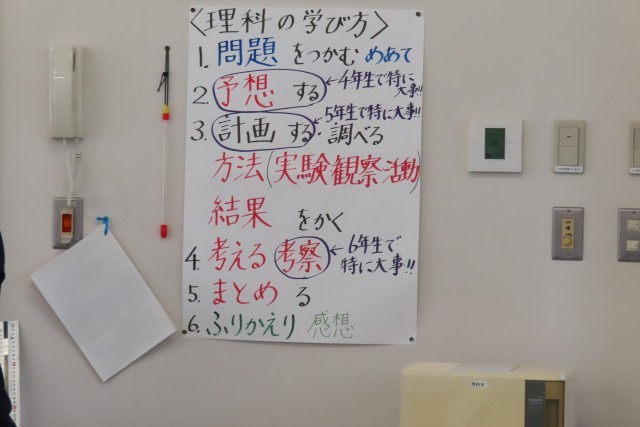 〈理科の学び方〉
1. 問題 をつかむ めあて
2. 予想 する ←4年生で特に大事!!
3. 計画 する・調べる ←5年生で特に大事!!
方法(実験観察活動)
結果 をかく
4. 考える 考察 ←6年生で特に大事!!
5. まとめ る
6. ふりかえり 感想
理科室